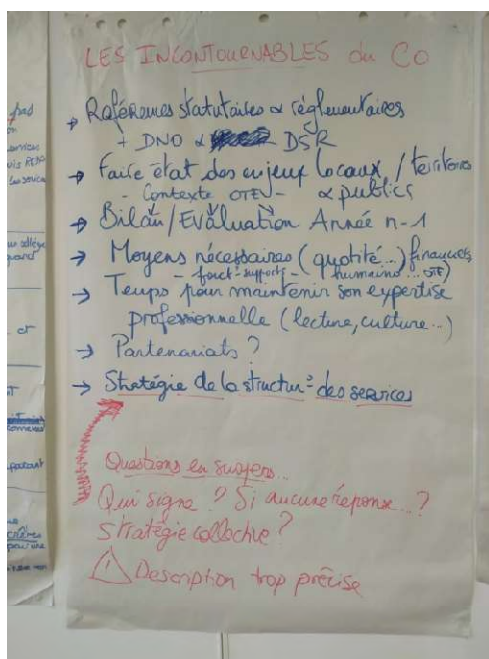 LES INCONTOURNABLES du CO
→ Références statutaires & réglementaires
+ DNO & DSR
→ Faire état des enjeux locaux / territoires
- Contexte - & publics
→ Bilan / Evaluation Année n-1
→ Moyens nécessaires (quotité...) financiers
- fonct° support - humains...
→ Temps pour maintenir son expertise
professionnelle (lecture, culture...)
→ Partenariats ?
→ Stratégie de la structur° des services
Questions en suspens...
Qui signe ? Si aucune réponse...?
Stratégie collective ?
! Description trop précise
pas
services
les services
collège
quand
et
partant
pour une